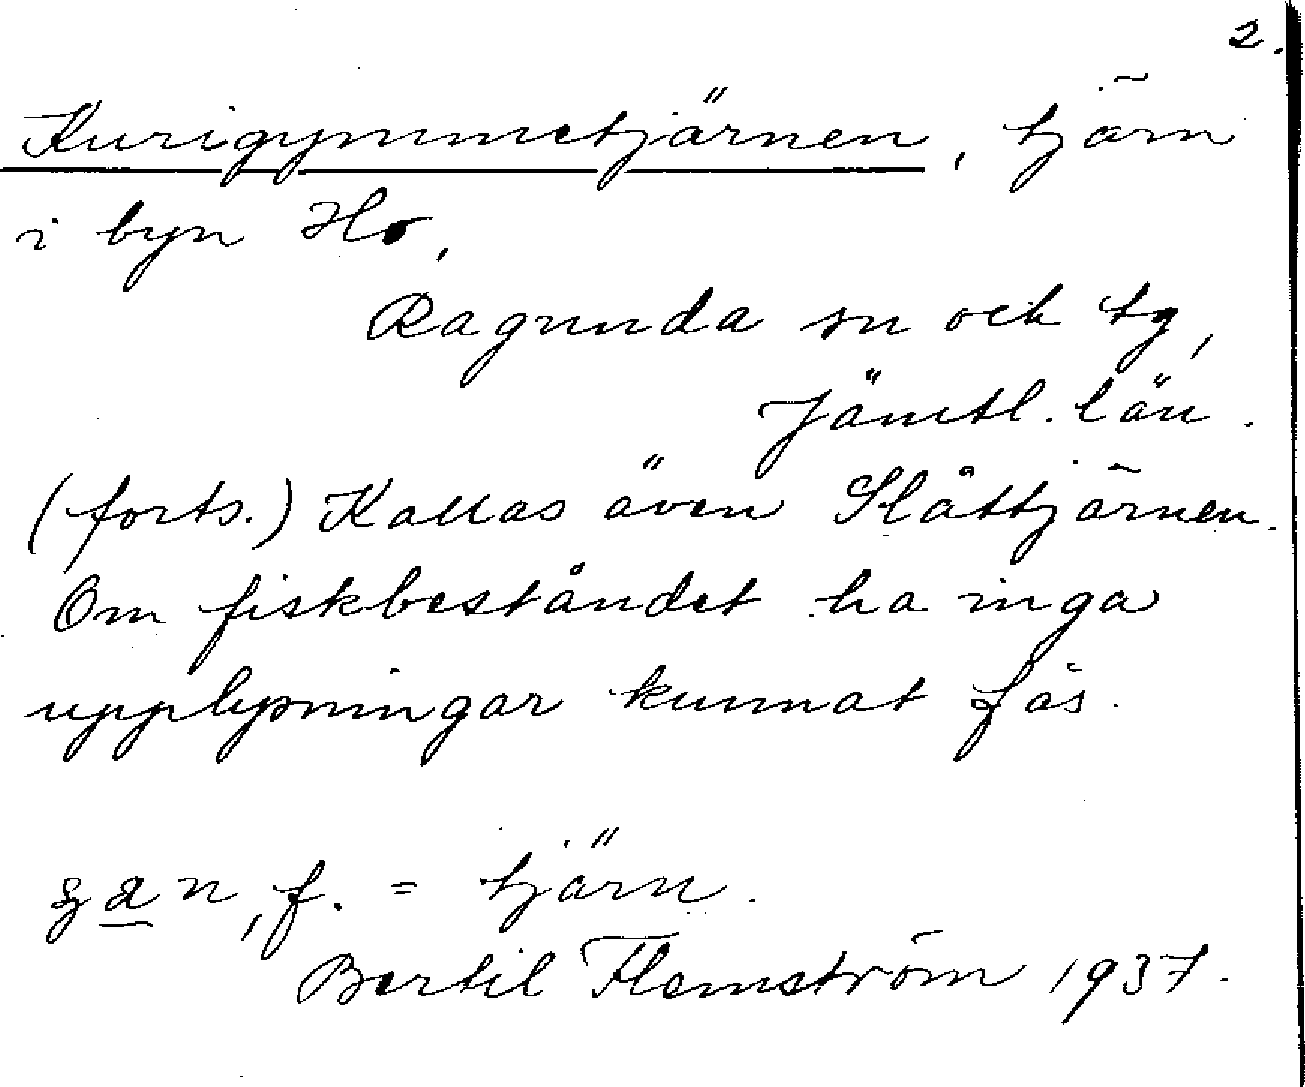 2.
Kurigymmetjärnen, tjärn
i byn Ho,
Ragunda sn och tg,
Jämtl. län.
(forts.) Kallas även Slåttjärnen.
Om fiskbeståndet ha inga
upplysningar kunnat fås.
f. = tjärn.
Bertil Flemström 1937.